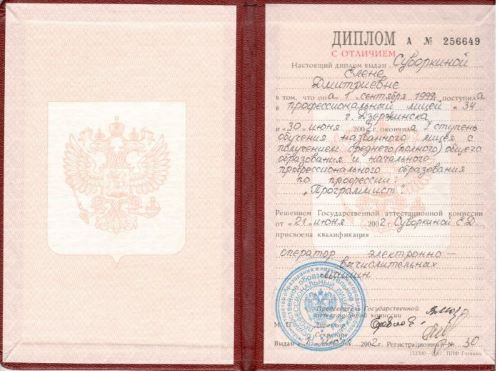 ДИПЛОМ А № 256649
С ОТЛИЧИЕМ
Настоящий диплом выдан Суворкиной
Елене
Дмитриевне
в том, что он а 1 сентября 1999 поступил а
в профессиональный лицей № 34
г. Дзержинска
и 30 июня 2002 г. окончил а I ступень
обучения названного лицея с
получением среднего (полного) общего
образования и начального
профессионального образования
по профессии:
"Программист"
Решением Государственной аттестационной комиссии
от 21 июня 2002 г. Суворкиной Е.Д.
присвоена квалификация
оператор электронно-
вычислительных
машин
Председатель Государственной
аттестационной комиссии
М.П. Директор
Секретарь
Выдан 2002 г. Регистрационный № 30